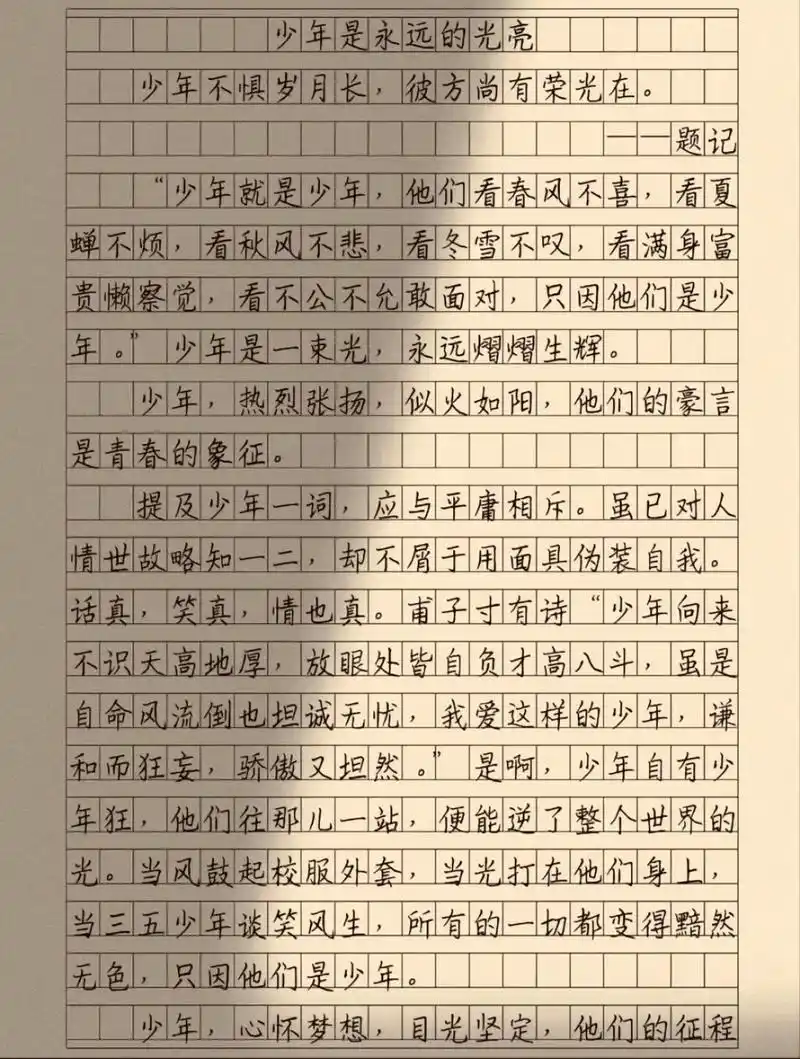 少年是永远的光亮
少年不惧岁月长，彼方尚有荣光在。
——题记
“少年就是少年，他们看春风不喜，看夏
蝉不烦，看秋风不悲，看冬雪不叹，看满身富
贵懒察觉，看不公不允敢面对，只因他们是少
年。”少年是一束光，永远熠熠生辉。
少年，热烈张扬，似火如阳，他们的豪言
是青春的象征。
提及少年一词，应与平庸相斥。虽已对人
情世故略知一二，却不屑于用面具伪装自我。
话真，笑真，情也真。甫子寸有诗“少年向来
不识天高地厚，放眼处皆自负才高八斗，虽是
自命风流倒也坦诚无忧，我爱这样的少年，谦
和而狂妄，骄傲又坦然。”是啊，少年自有少
年狂，他们往那儿一站，便能逆了整个世界的
光。当风鼓起校服外套，当光打在他们身上，
当三五少年谈笑风生，所有的一切都变得黯然
无色，只因他们是少年。
少年，心怀梦想，目光坚定，他们的征程